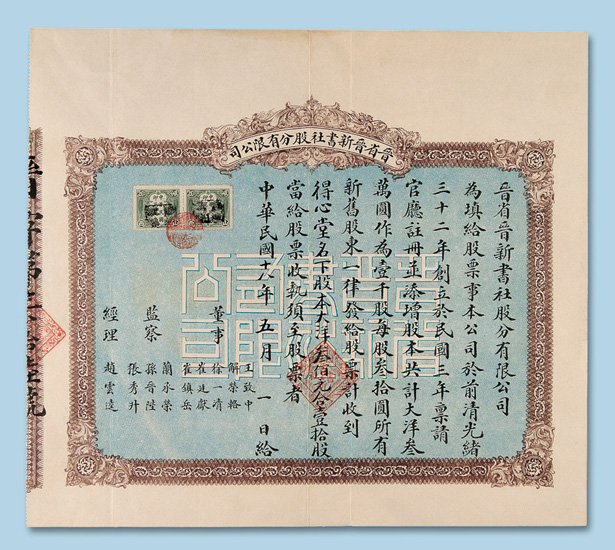 晉省晉新書社股分有限公司
晉省晉新書社股分有限公司
為填給股票事本公司於前清光緒
三十二年創立於民國三年稟請
官廳註冊並添增股本共計大洋叁
萬圓作為壹千股每股叁拾圓所有
新舊股東一律發給股票計收到
得心堂名下股本大洋叁佰元合壹拾股
當給股票收執須至股票者
中華民國十八年五月一日給
董事
王致中
解榮輅
徐一清
崔廷獻
崔鎮岳
監察
蘭承榮
孫晉陞
張秀升
經理
趙雲逵